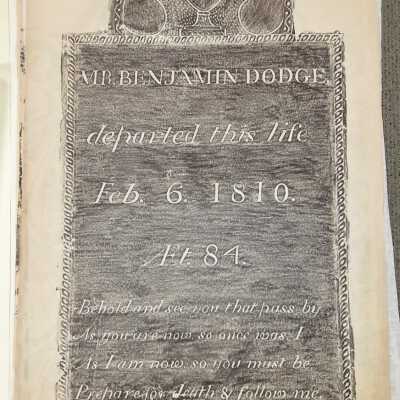 MR. BENJAMIN DODGE
departed this life
Feb. 6. 1810.
Æt. 84.
Behold and see you that pass by
As you are now so once was I
As I am now so you must be
Prepare for death & follow me.